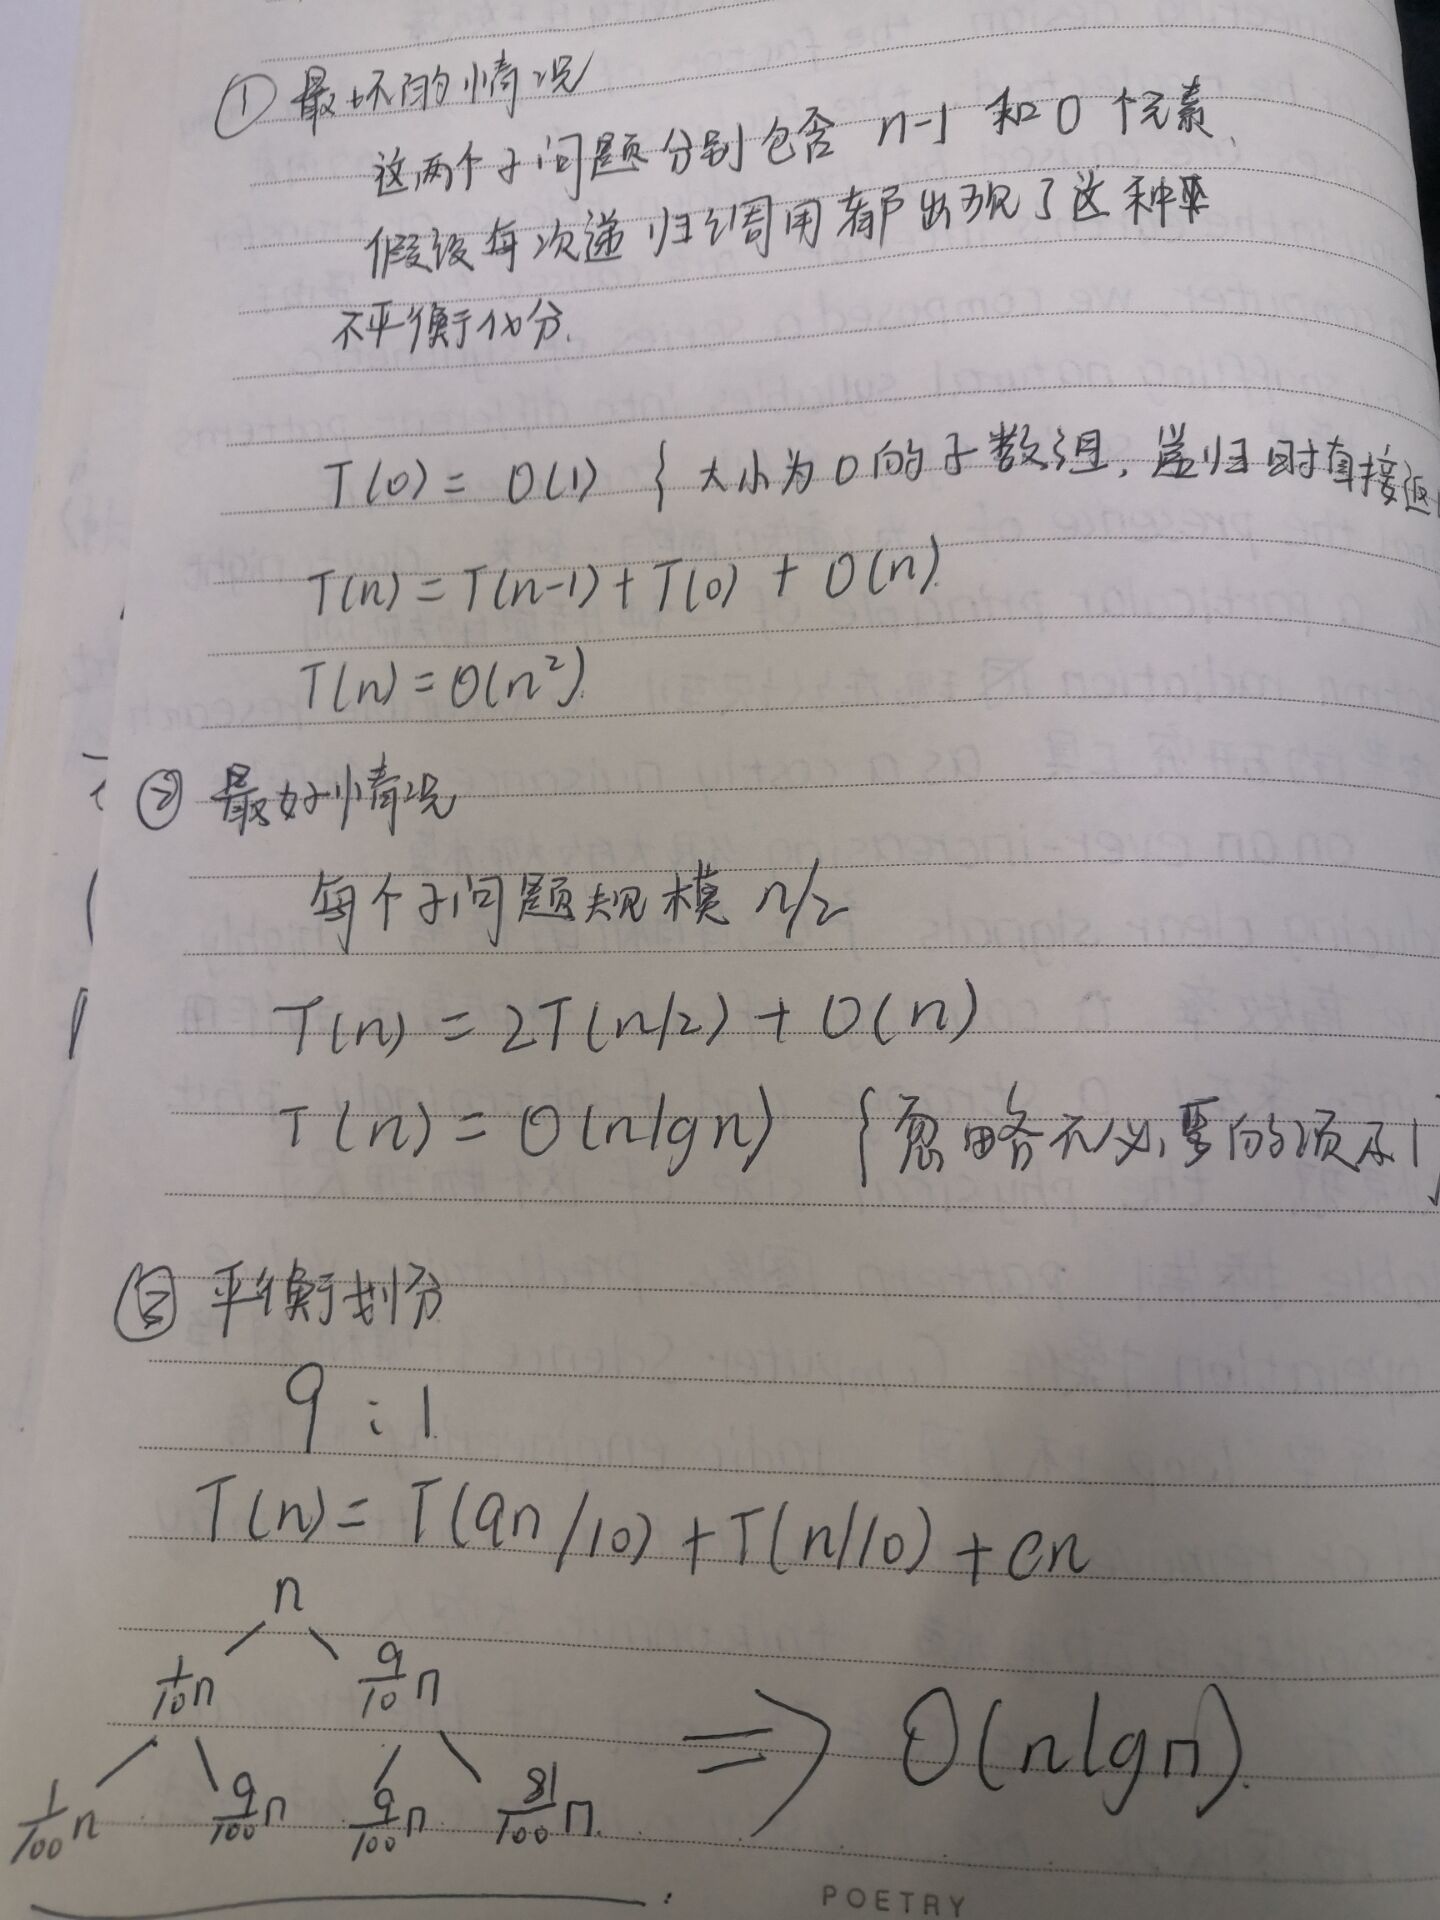 ① 最坏的情况
这两个子问题分别包含 n-1 和 0 个元素,
假设每次递归调用都出现了这种
不平衡化分.
T(0) = O(1) { 大小为0的子数组, 递归时直接返
T(n) = T(n-1) + T(0) + O(n).
T(n) = Θ(n²).
② 最好情况
每个子问题规模 n/2
T(n) = 2T(n/2) + O(n)
T(n) = Θ(nlgn) {忽略无必要的项
③ 平衡划分
9 : 1
T(n) = T(9n/10) + T(n/10) + cn
n
1/10 n 9/10 n
1/100 n 9/100 n 9/100 n 81/100 n. => O(nlgn).
POETRY